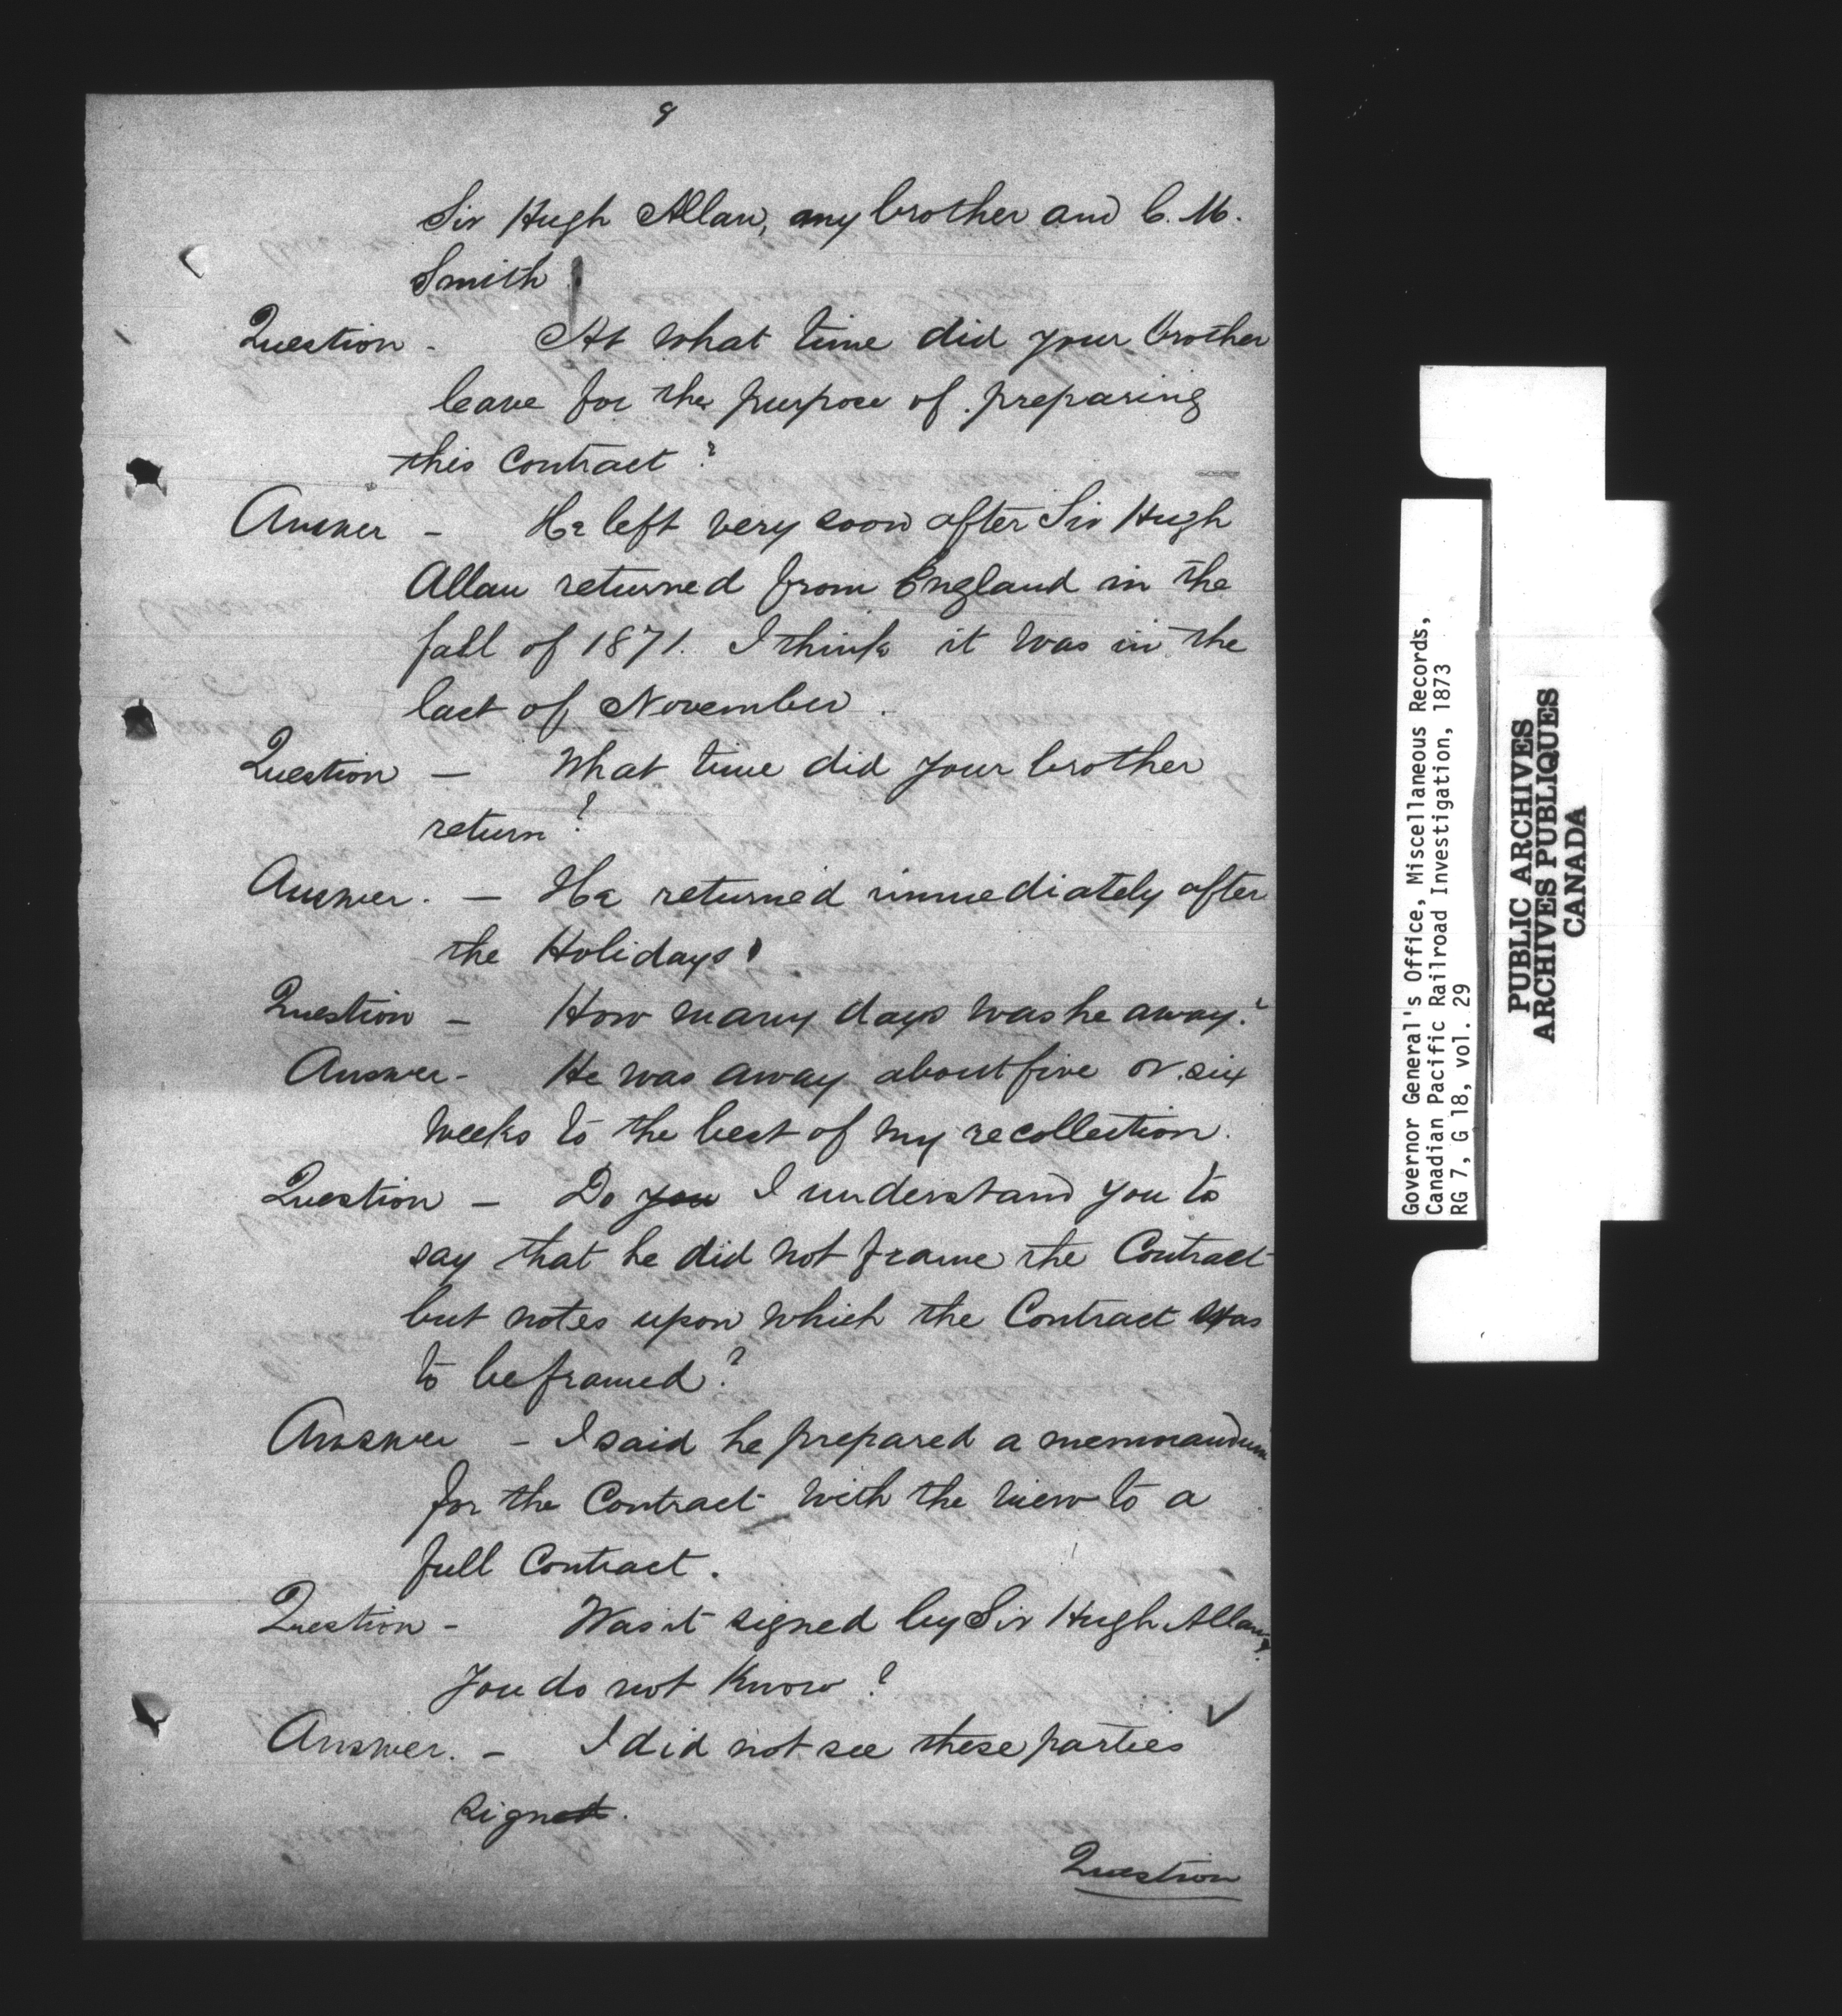 9
Sir Hugh Allan, my brother and C. M.
Smith
Question - At what time did your brother
leave for the purpose of preparing
this Contract?
Answer - He left very soon after Sir Hugh
Allan returned from England in the
fall of 1871. I think it was in the
last of November.
Question - What time did your brother
return?
Answer. - He returned immediately after
the Holidays.
Question - How many days was he away?
Answer - He was away about five or six
weeks to the best of my recollection.
Question - Do you I understand you to
say that he did not frame the Contract
but notes upon which the Contract was
to be framed?
Answer - I said he prepared a memorandum
for the Contract with the view to a
full Contract.
Question - Was it signed by Sir Hugh Allan?
You do not know?
Answer. - I did not see these parties
signed.
Question
Governor General's Office, Miscellaneous Records,
Canadian Pacific Railroad Investigation, 1873
RG 7, G 18, vol. 29
PUBLIC ARCHIVES
ARCHIVES PUBLIQUES
CANADA